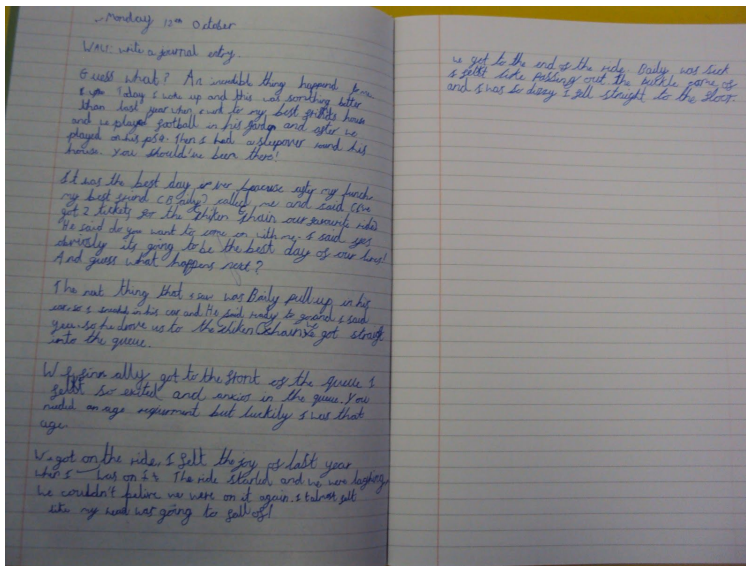 Monday 12th October
WALT: write a journal entry.
Guess what? An incredible thing happend to me
Today I woke up and this was somthing better
than last year when I went to my best freinds house
and we played football in his garden and after we
played on his ps4. Then I had a sleepover round his
house. You should've been there!
It was the best day ever because after my lunch
my best freind (Baily) called me and said I've
got 2 tickets for the our favourite ride
He said do you want to come on with me. I said yes
obviously its going to be the best day of our lives!
And guess what happens next?
The next thing that I saw was Baily pull up in his
in his car and He said ready to go and I said
yea. so he drove us to the got straight
into the queue.
We finn ally got to the front of the queue I
felt so exited and anxios in the queue. You
needed an age requirment but luckily I was that
age.
We got on the ride, I felt the joy of last year
when I was on it. The ride started and we were laghing
We couldn't belive we were on it again. I felt
like my head was going to fall of!
we got to the end of the ride. Baily was sick
I felt like passing out the buckle came of
and I was so dizzy I fell straight to the floor.